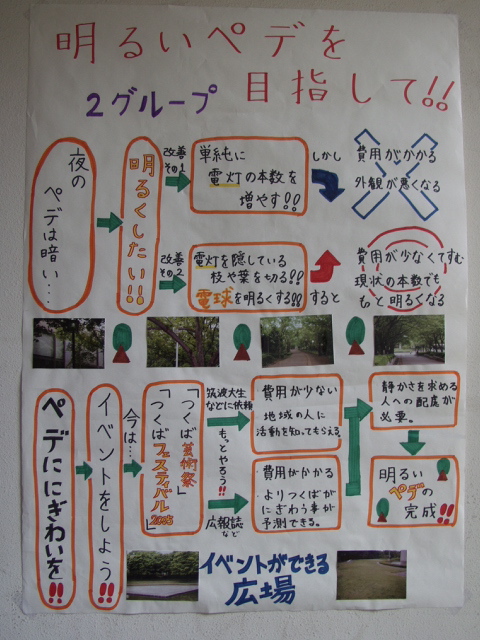 明るいペデを
目指して!!
2グループ
夜の
ペデは暗い…
明るくしたい!!
改善
その1
単純に
電灯の本数を
増やす!!
しかし
費用がかかる
外観が悪くなる
改善
その2
電灯を隠している
枝や葉を切る!!
電球を明るくする!!
すると
費用が少なくてすむ
現状の本数でも
もっと明るくなる
ペデににぎわいを!!
イベントをしよう!!
今は…
「つくば芸術祭」
「つくばフェスティバル2005」
筑波大生
などに依頼
もっとやろう!!
広報誌
など
費用が少ない
地域の人に
活動を知ってもらえる。
費用がかかる
よりつくばが
にぎわう事が
予測できる。
静かさを求める
人への配慮が
必要。
明るい
ペデの
完成!!
イベントができる
広場